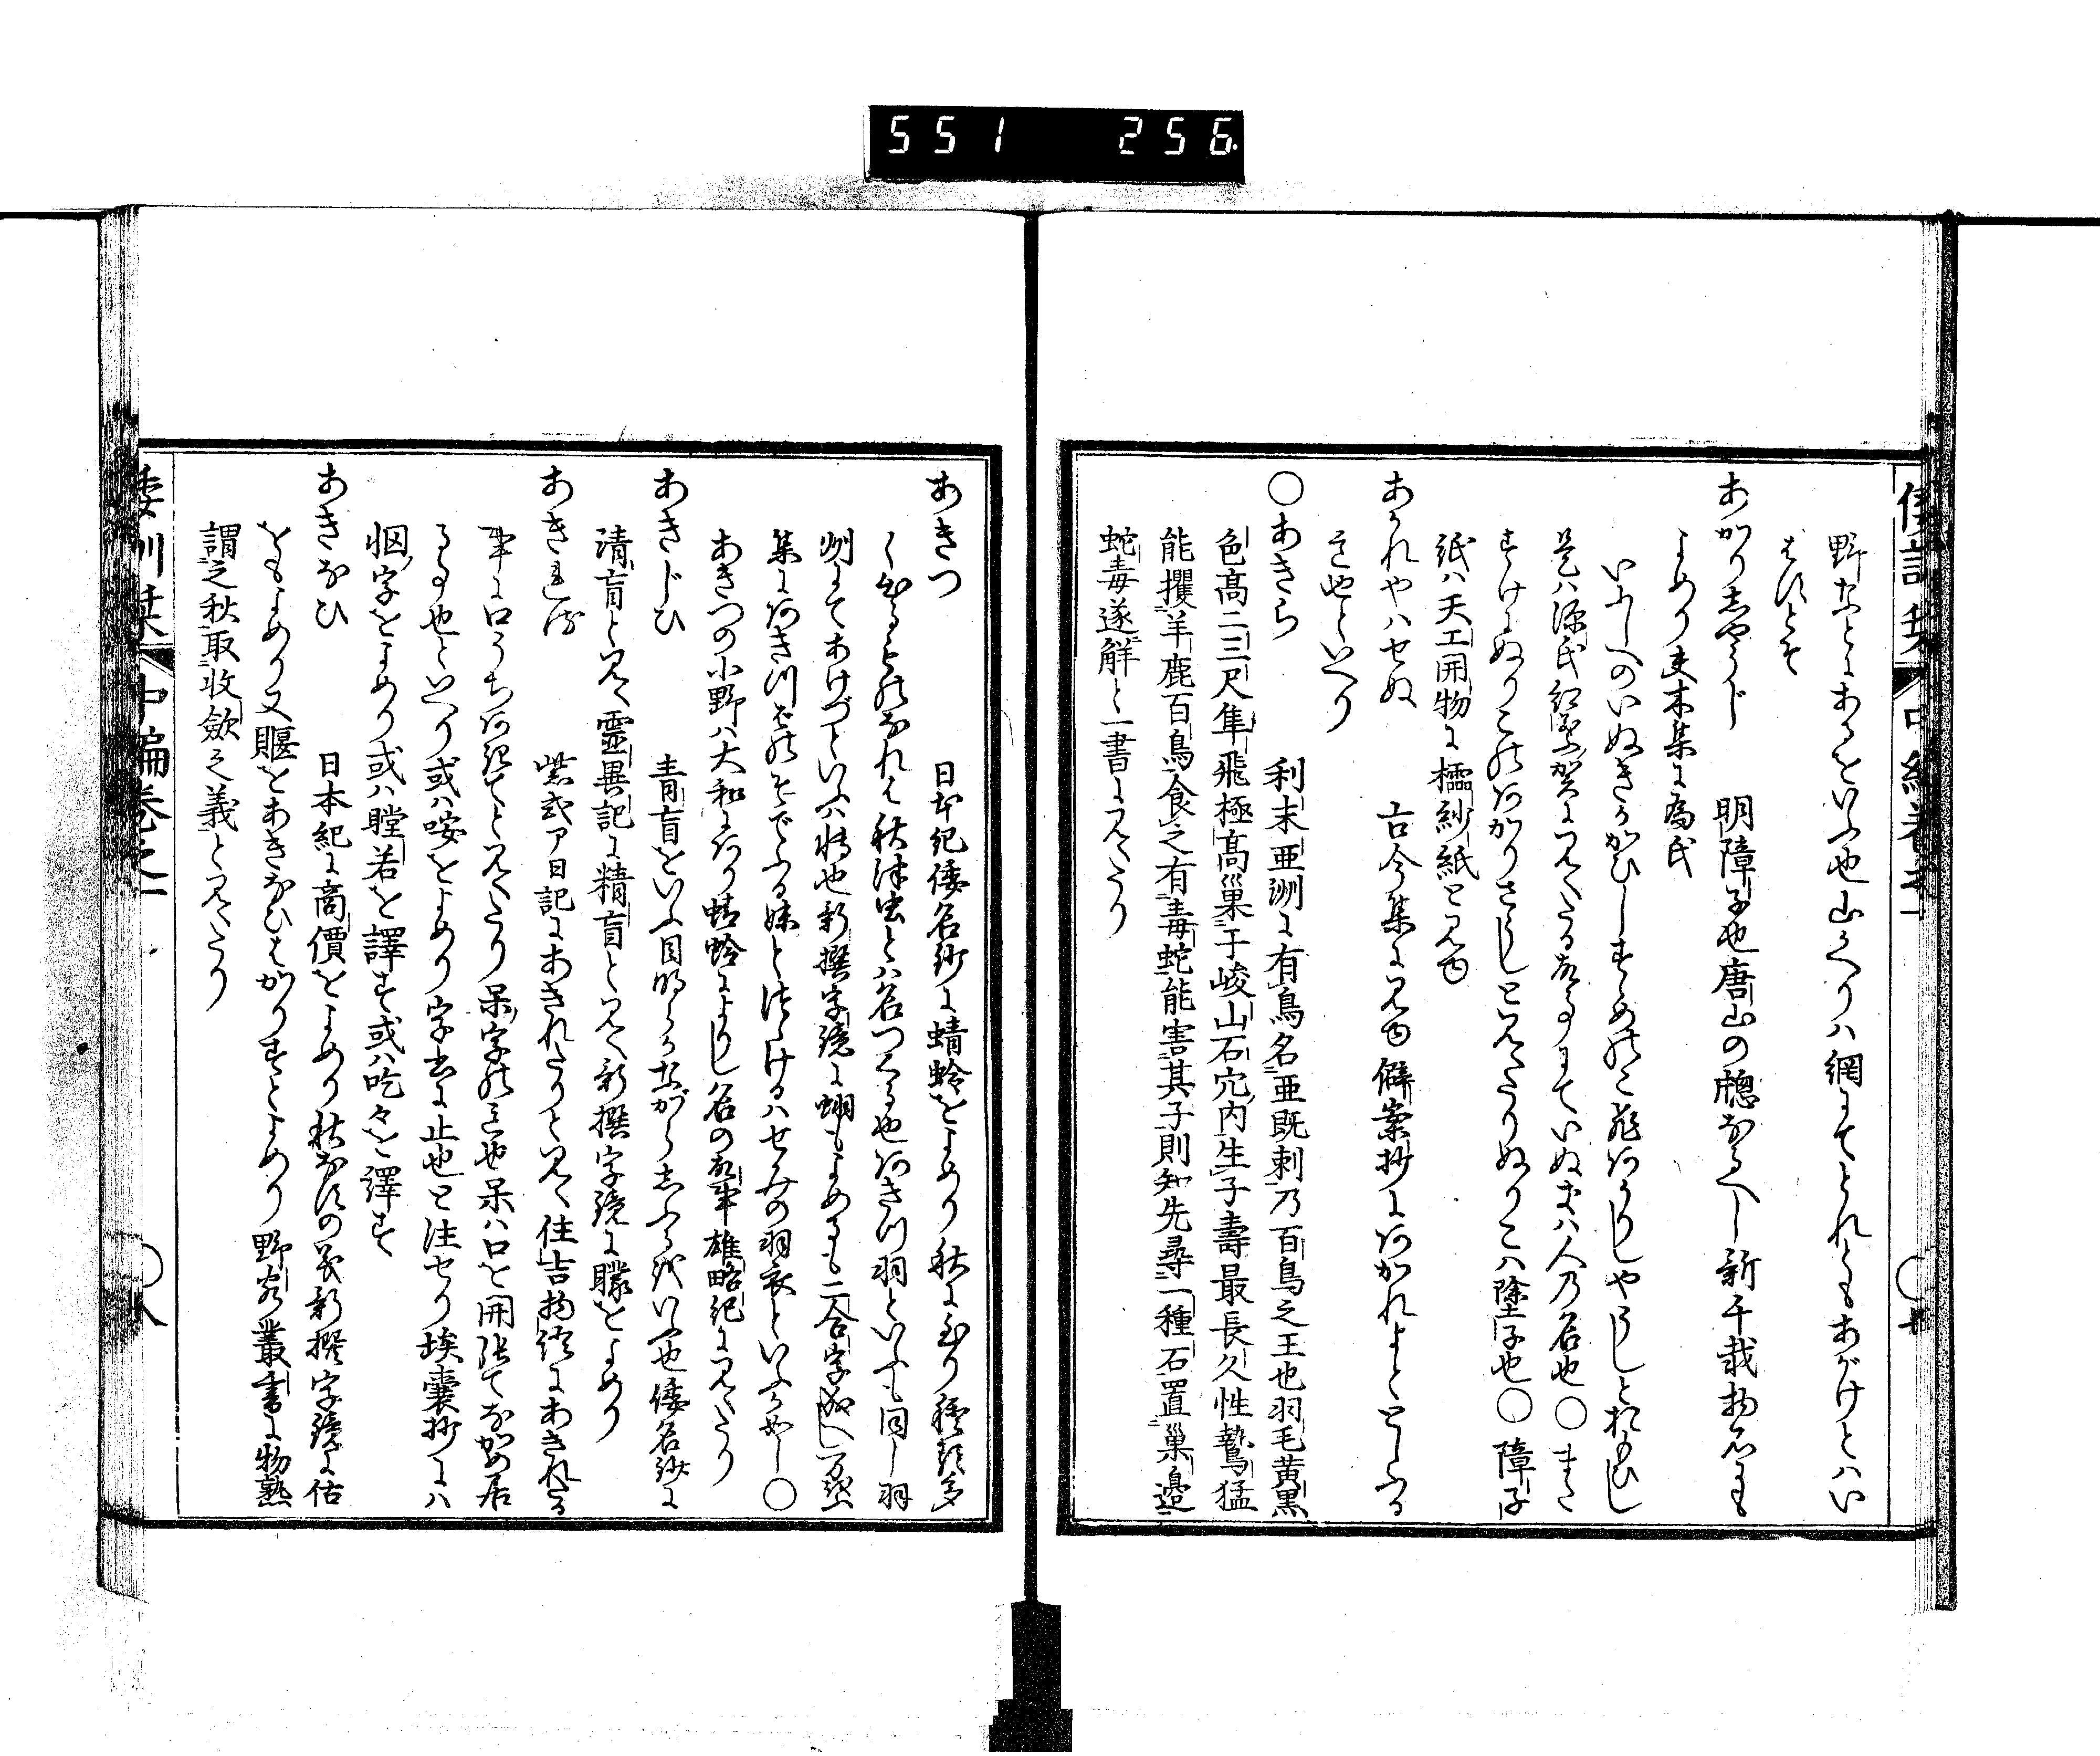 551 256
野なとにあるをいふ也山かへりハ網にてとれともあがけとハい
はすとそ
あかりしやうじ 明障子也唐山の牕なるへし新千載物名にも
よめり夫木集に為氏
いにしへのいぬきかかひしすゝめのこ飛あかりしやうしとおもひし
是ハ源氏紅葉賀に見えたる故事にていぬきハ人の名也〇また
すけにぬりこのあかりさうしと見えたりぬりこハ塗子也〇障子
紙ハ天工開物に櫺紗紙と見ゆ
あかれやハせぬ 古今集に見ゆ僻案抄にあかれよととしふる
こ也といへり
〇あきら 利未亜洲に有鳥名亜既剌乃百鳥之王也羽毛黄黒
色高二三尺隼飛極高巣于峻山石穴内生子壽最長久性鷙猛
能攫羊鹿百鳥食之有毒蛇能害其子則知先尋一種石置巣邉
蛇毒遂解と一書に見えたり
倭訓栞 中編巻之一
あきつ 日本紀倭名鈔に蜻蛉をよめり秋に至り種類多
く出るものなれは秋津虫とハ名つくる也あきつ羽といふも同し羽
洲にてあけづといふハ轉也新撰字鏡に蝴もよめるも二合字成へし万葉
集にあきつはのそでふる妹とつゝけるハせみの羽衣といふか如し〇
あきつの小野ハ大和にあり蜻蛉によりし名の故事雄略紀に見えたり
あきじひ 青盲をいふ目明らかながらしふるをいふ也倭名鈔に
清盲と見え靈異記に精盲と見え新撰字鏡に矇をよめり
あきれる 紫式ア日記にあきれたりと見え住吉物語にあきれたる
事に口うちあきてと見えたり呆字の意也呆ハ口を開張てながめ居
る事也といへり或ハ㖠をよめり字書に止也と注せり埃嚢抄にハ
㤟字をよめり或ハ瞠若を譯す或ハ吃々を譯す
あきなひ 日本紀に商價をよめり秋なすの義新撰字鏡に估
をもよめり又賑をあきなひはかりすとよめり野客叢書に物熟
謂之秋取收斂之義と見えたり
倭訓栞 中編巻之一 〇八